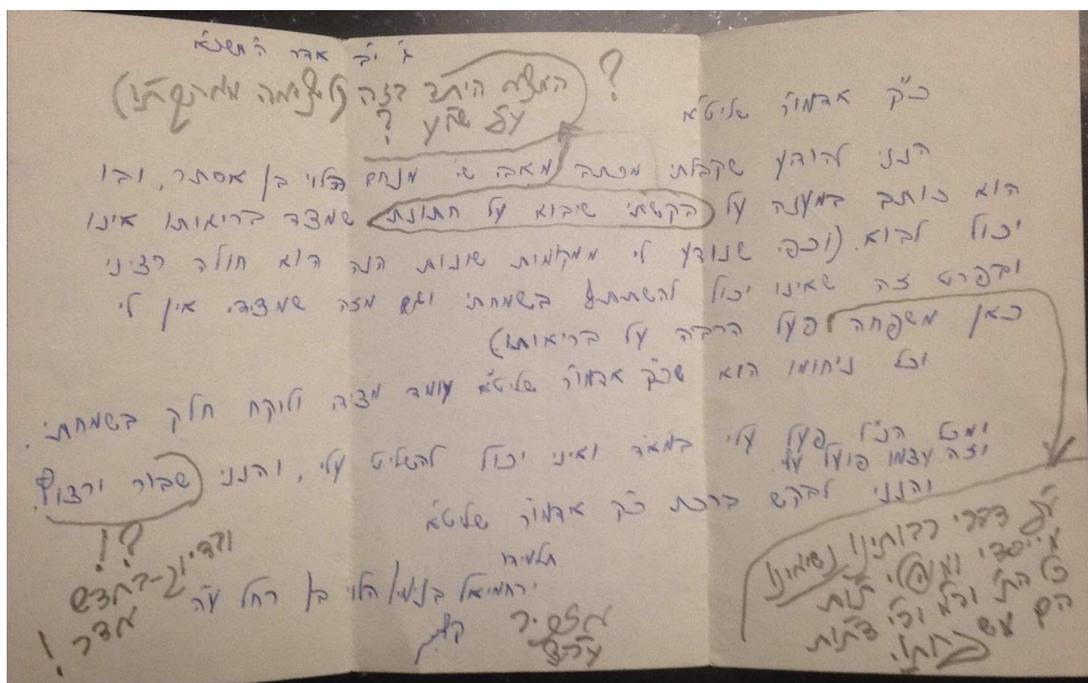 ג' י"ב אדר ה'תשכ"א
האם היתה בזה
על שו"ע ?
?
כ"ק אדמו"ר שליט"א
הנני להודיע שקבלתי מכתב מאבי שי' מנחם הלוי בן אסתר, ובו
הוא כותב במענה על בקשתי שיבוא על חתונתי שמצד בריאותו אינו
יכול לבוא. (וכפי שנודע לי ממקומות שונות הנה הוא חולה רציני
ובפרט זה שאינו יכול להשתתף בשמחתי וגם מזה שמצדי אין לי
כאן משפחה פעל הרבה על בריאותו)
וכל ניחומו הוא שכ"ק אדמו"ר שליט"א עומד מצידי ולוקח חלק בשמחתי.
ומכל הנ"ל פעל עלי במאד ואיני יכול להשליט עלי, והנני שבור ורצוץ.
וזה עצמו פועל עלי.
והנני לבקש ברכת כ"ק אדמו"ר שליט"א
תלמידו
ירחמיאל בנימין הלוי בן רחל ע"ה
קליין
!?
ובדיוק - בחדש
אדר !
אזכיר
עה"צ
ע"פ דברי רבותינו נשיאינו
מייסדי ומנהלי תות"ל
כל הת' והר"מ והר"י דתות"ל
הם משפחתו!